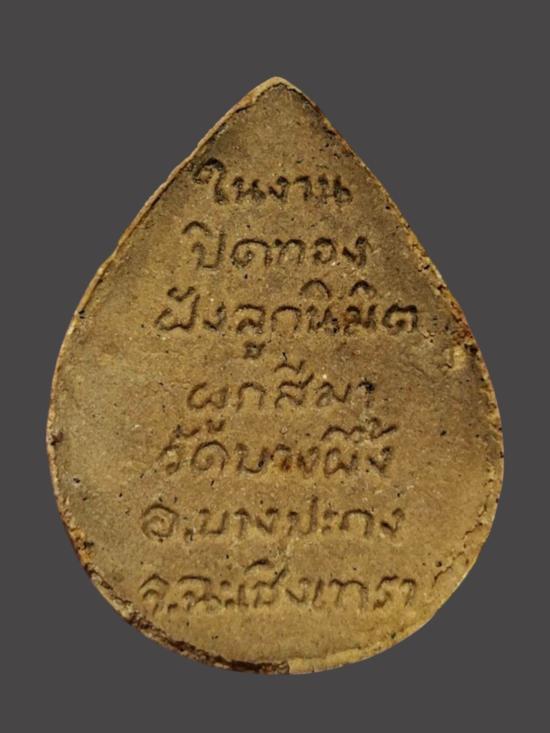 ในงาน
ปิดทอง
ฝังลูกนิมิต
ผูกสีมา
วัดบางผึ้ง
อ.บางปะกง
จ.ฉะเชิงเทรา